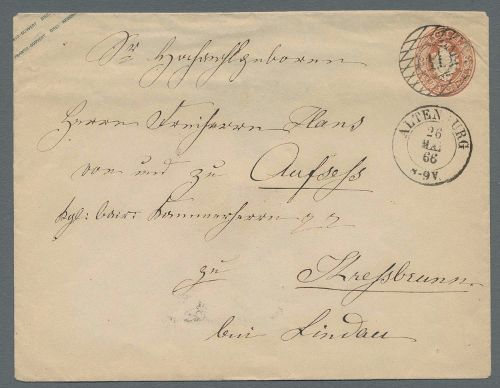 Sr Hochwohlgeboren
Herrn Freiherrn Hans
von und zu Aufsess
kgl: bair: Kammerherrn
zu
Kressbrunn
bei Lindau
ALTENBURG
26
MAI
66
8-9V.